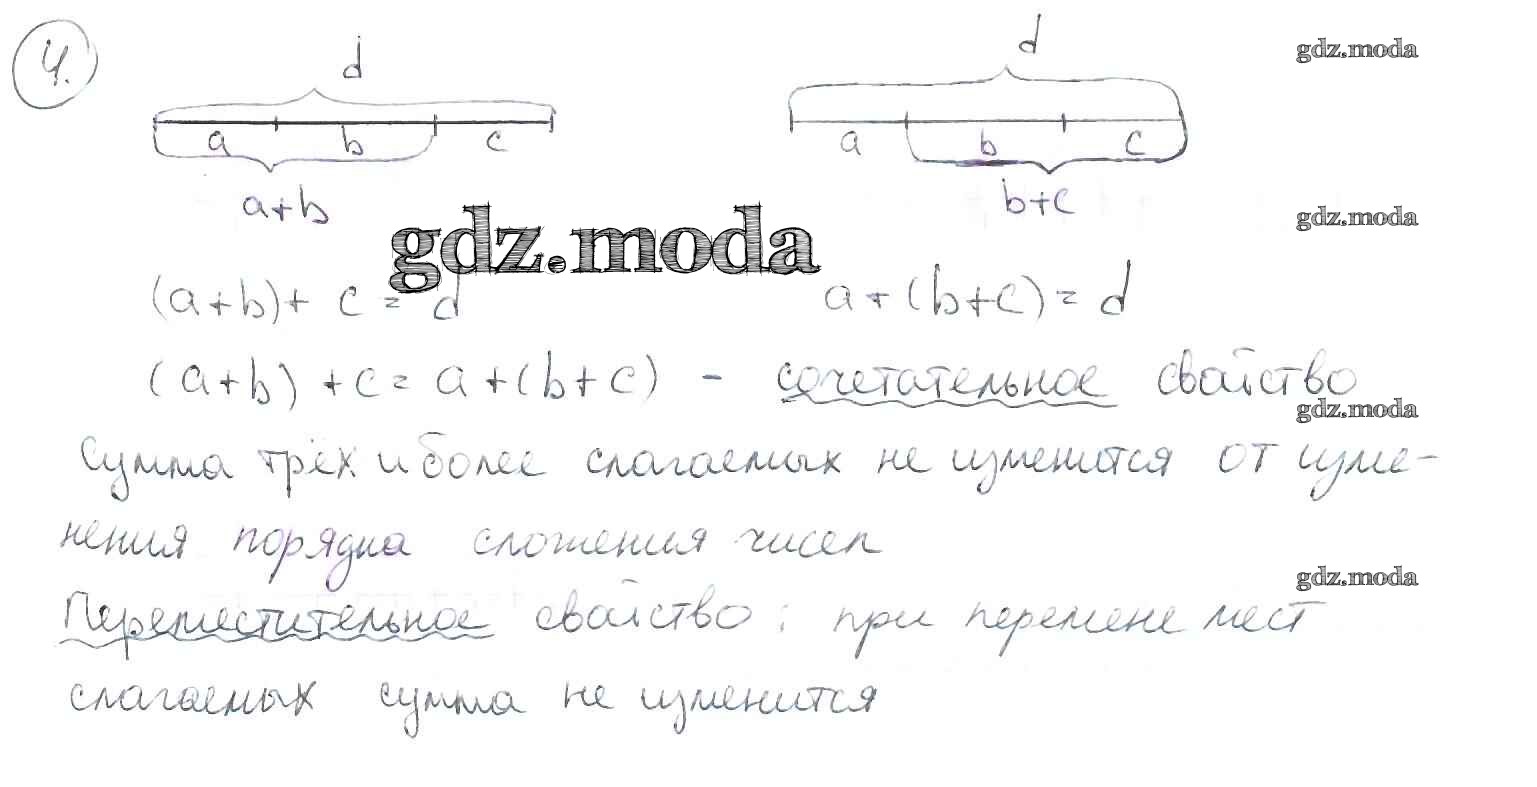 4.
d
d
gdz.moda
a b c
a b c
a+b
b+c
gdz.moda
gdz.moda
(a+b)+ c = d
a+(b+c)= d
(a+b) +c = a+(b+c) - сочетательное свойство
gdz.moda
Сумма трёх и более слагаемых не изменится от изме-
нения порядка сложения чисел
gdz.moda
Переместительное свойство: при перемене мест
слагаемых сумма не изменится